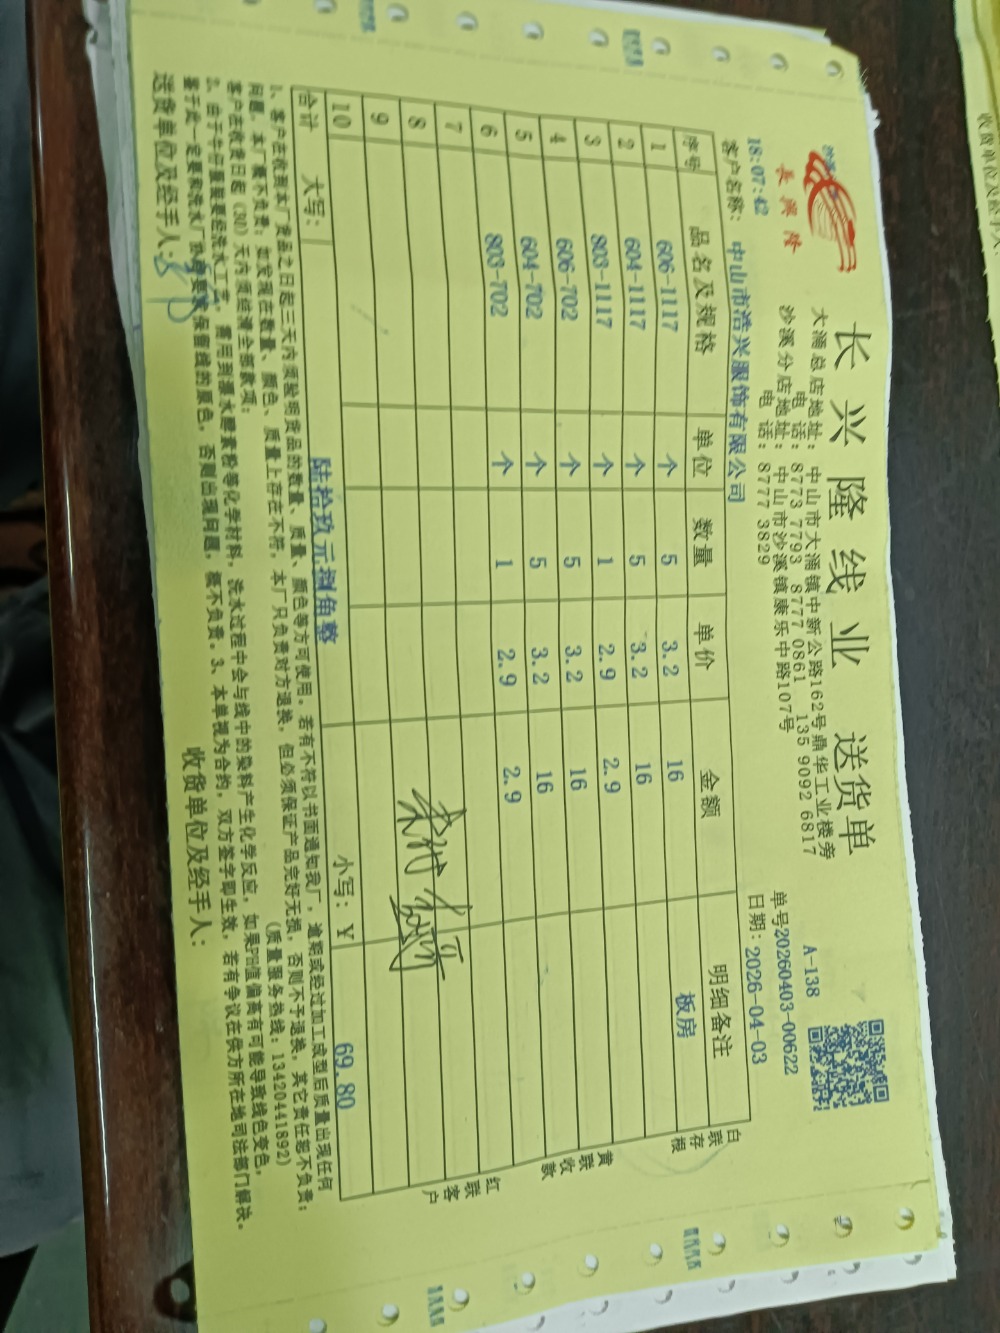 長興隆
长兴隆线业 送货单
大涌总店地址：中山市大涌镇中新公路162号鼎华工业楼旁
电 话：8773 7793 8777 0861 135 9092 6817
沙溪分店地址：中山市沙溪镇康乐中路107号
电 话：8777 3829
A-138
单号20260403-00622
日期：2026-04-03
18:07:42
客户名称：中山市浩兴服饰有限公司
序号 品名及规格 单位 数量 单价 金额 明细备注
1 606-1117 个 5 3.2 16 板房
2 604-1117 个 5 3.2 16
3 803-1117 个 1 2.9 2.9
4 606-702 个 5 3.2 16
5 604-702 个 5 3.2 16
6 803-702 个 1 2.9 2.9
7
8
9
10
合计 大写：陆拾玖元捌角整 小写：￥ 69.80
白联存根
黄联收款
红联客户
1、客户在收到本厂货品之日起三天内须验明货品的数量、质量、颜色等方可使用，若有不符以书面通知我厂，逾期或经过加工成型后质量出现任何
问题，本厂概不负责；如发现在数量、颜色、质量上存在不符，本厂只负责对方退换，但必须保证产品完好无损，否则不予退换，其它责任能不负责；
客户在收货日起（30）天内须结清全部款项； （质量服务热线：13420441892）
2、由于牛仔服装要经洗水工艺，需用到漂水酵素粉等化学材料，洗水过程中会与线中的染料产生化学反应，如果PH值偏高有可能导致线色变色，
鉴于此一定要和洗水厂执照要求保留线的原色，否则出现问题，概不负责。3、本单视为合约，双方签字即生效，若有争议在供方所在地司法部门解决。
送货单位及经手人： 收货单位及经手人：
收货单位及经手人：